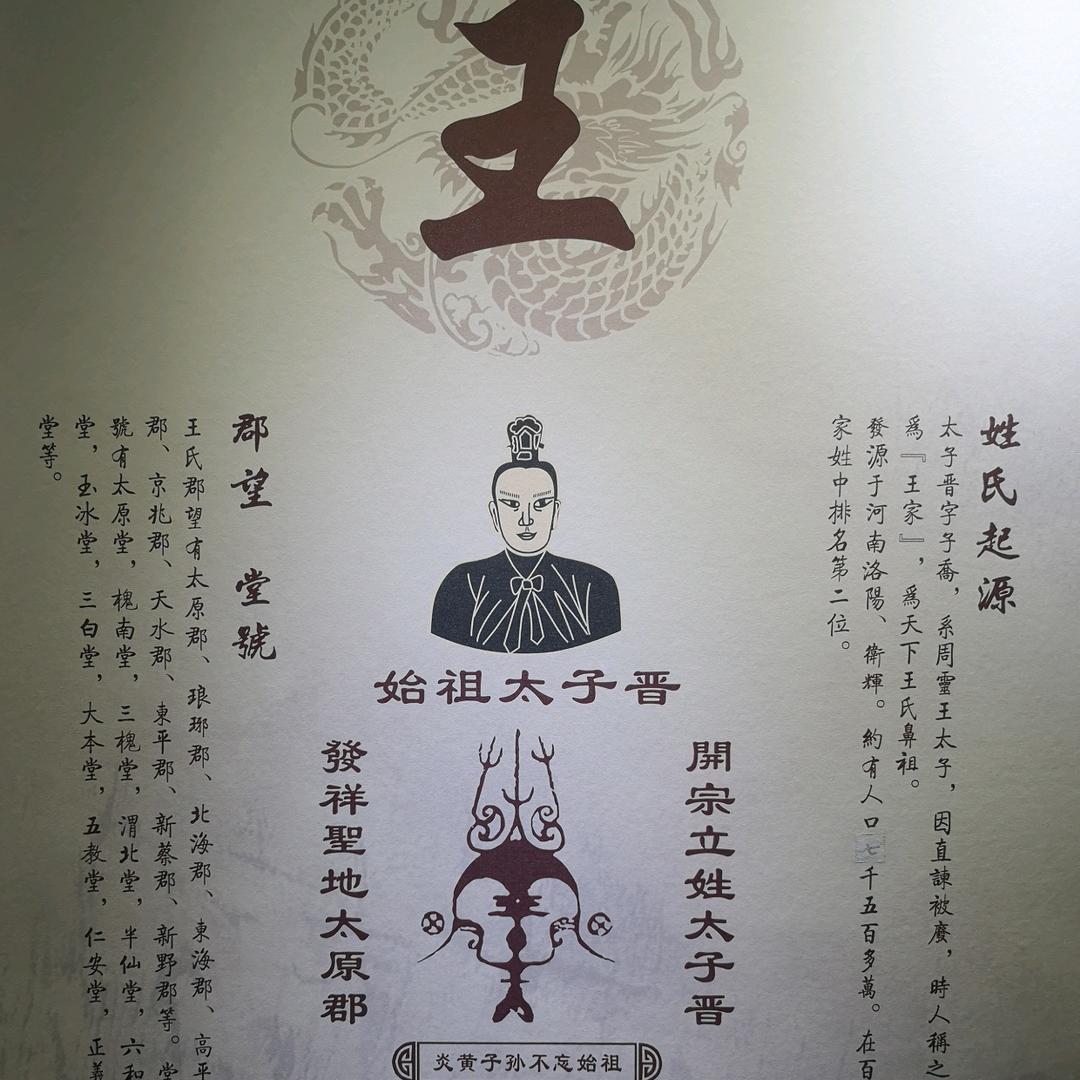 王
姓氏起源
太子晋字子喬，系周靈王太子，因直諫被廢，時人稱之
爲『王家』，爲天下王氏鼻祖。
發源于河南洛陽、衛輝。約有人口七千五百多萬。在百
家姓中排名第二位。
始祖太子晋
開宗立姓太子晋
發祥聖地太原郡
炎黄子孙不忘始祖
郡望 堂號
王氏郡望有太原郡、琅琊郡、北海郡、東海郡、高平
郡、京兆郡、天水郡、東平郡、新蔡郡、新野郡等。堂
號有太原堂，槐南堂，三槐堂，渭北堂，半仙堂，六和
堂，玉冰堂，三白堂，大本堂，五教堂，仁安堂，正義
堂等。